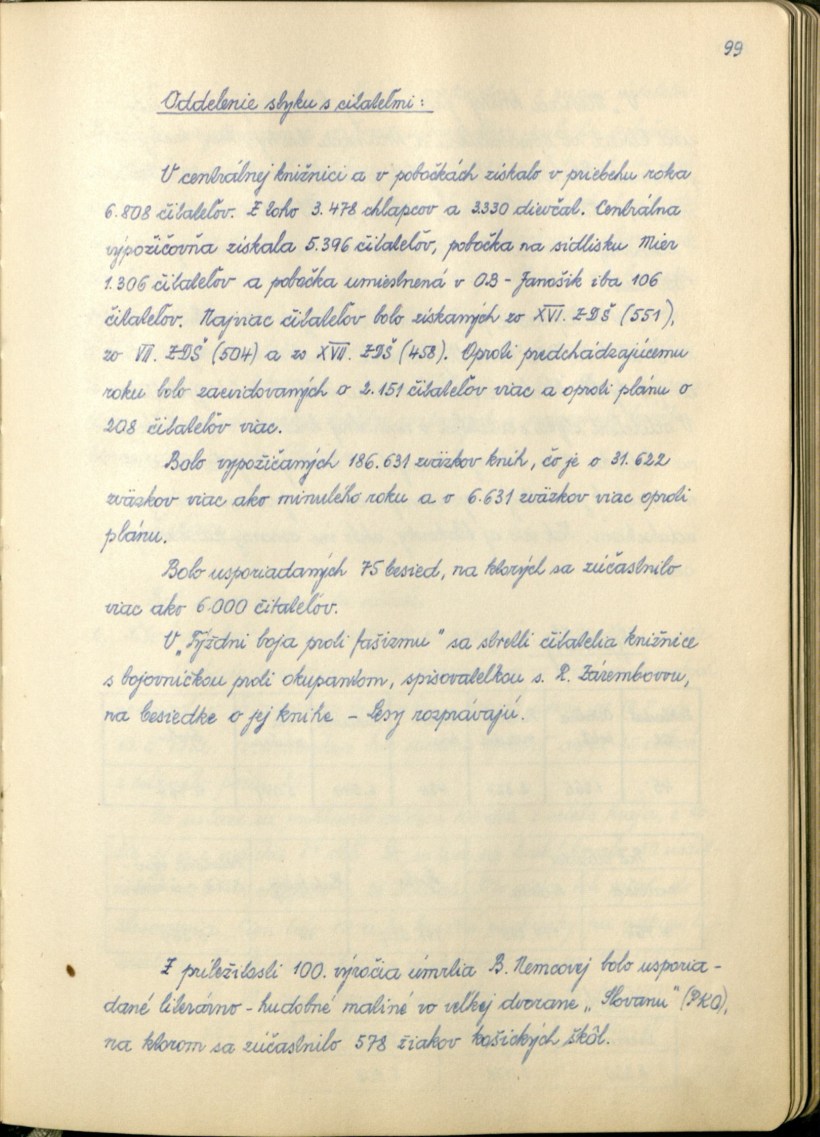 99
Oddelenie styku s čitateľmi:
V centrálnej knižnici a v pobočkách získalo v priebehu roka
6.808 čitateľov. Z toho 3.478 chlapcov a 3.330 dievčat. Centrálna
výpožičovňa získala 5.396 čitateľov, pobočka na sídlisku Mier
1.306 čitateľov a pobočka umiestnená v OB - Janošík iba 106
čitateľov. Najviac čitateľov bolo získaných zo XVI. ZDŠ (551),
zo VII. ZDŠ (504) a zo XVII. ZDŠ (458). Oproti predchádzajúcemu
roku bolo zaevidovaných o 2.151 čitateľov viac a oproti plánu o
208 čitateľov viac.
Bolo vypožičaných 186.631 zväzkov kníh, čo je o 31.622
zväzkov viac ako minulého roku a o 6.631 zväzkov viac oproti
plánu.
Bolo usporiadaných 75 besied, na ktorých sa zúčastnilo
viac ako 6.000 čitateľov.
V „Týždni boja proti fašizmu" sa stretli čitatelia knižnice
s bojovníčkou proti okupantom, spisovateľkou s. R. Zárembovou,
na besiedke o jej knihe - Lesy rozprávajú.
Z príležitosti 100. výročia úmrtia B. Nemcovej bolo usporia-
dané literárno - hudobné matiné vo veľkej dvorane „Slovanu" (PKO),
na ktorom sa zúčastnilo 578 žiakov košických škôl.